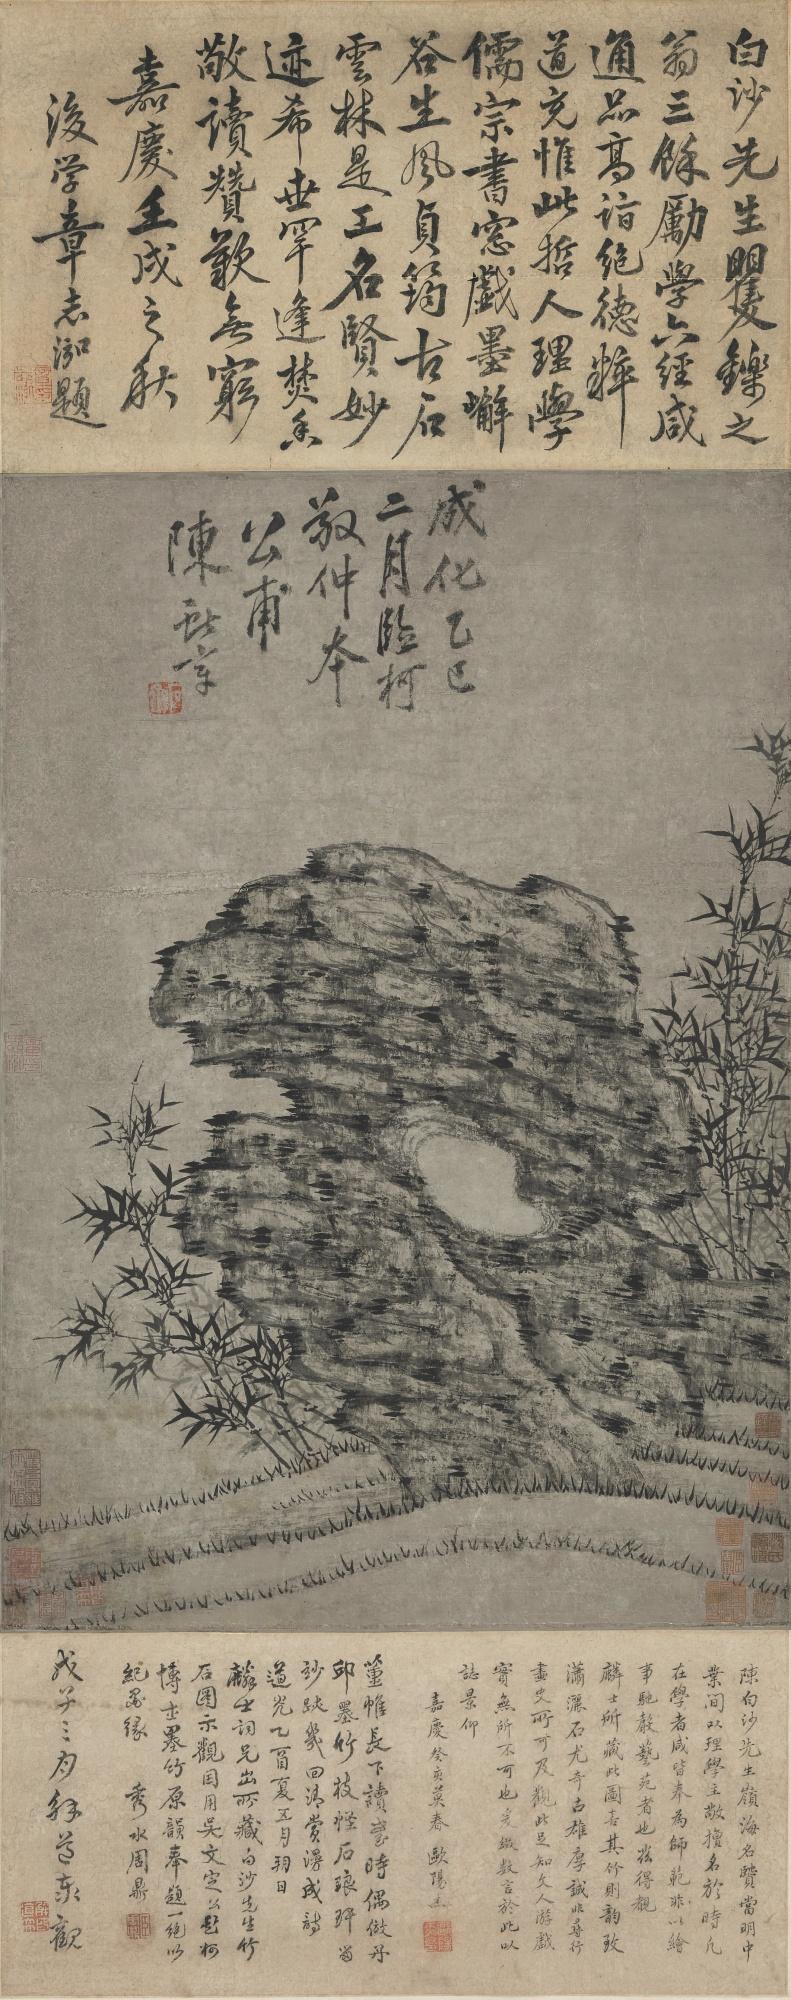 白沙先生矍鑠之
翁三餘勵學六經咸
通品高詣絕德粹
道充惟此哲人理學
儒宗書窓戲墨嶰
谷生風貞筠古石
雲林是工名賢妙
迹希世罕逢焚香
敬讀贊歎無窮
嘉慶壬戌之秋
後学章志泓題
成化乙巳
二月臨柯
敬仲本
公甫
陳獻章
陳白沙先生嶺海名賢當明中
業間以理學主敬擅名於時凡
在學者咸皆奉為師範非以繪
事馳聲藝苑者也茲得觀
麟士所藏此圖喜其竹則韵致
瀟灑石尤奇古雄厚誠非尋行
畫史所可及觀此足知文人游戲
實無所不可也爰綴數言於此以
誌景仰
嘉慶癸亥莫春 歐陽
董帷長下讀書時偶倣丹
邱墨竹枝怪石琅玕留
妙跡幾回清賞得成詩
道光乙酉夏五月朔日
麟士詞兄出所藏白沙先生竹
石圖示觀因用吳文定公題柯
博士墨竹原韻奉題一絕以
紀墨緣 秀水周鼎
戊子三月 觀